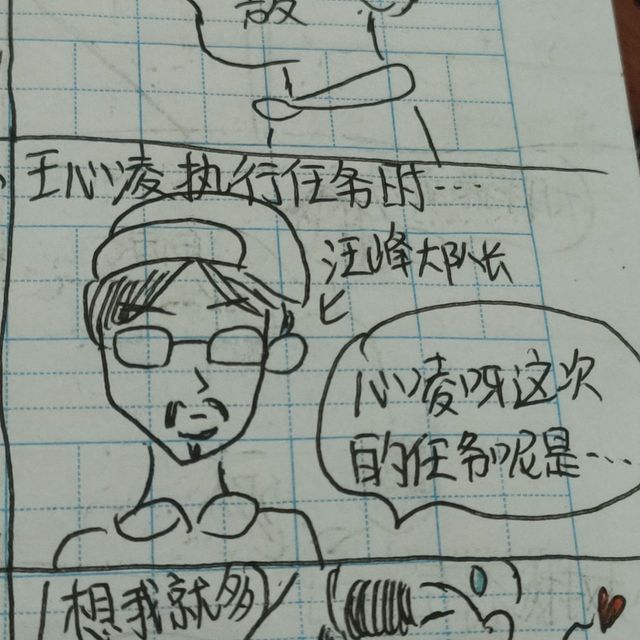 王心凌执行任务时…
汪峰大队长
心凌呀这次
的任务呢是…
想我就多